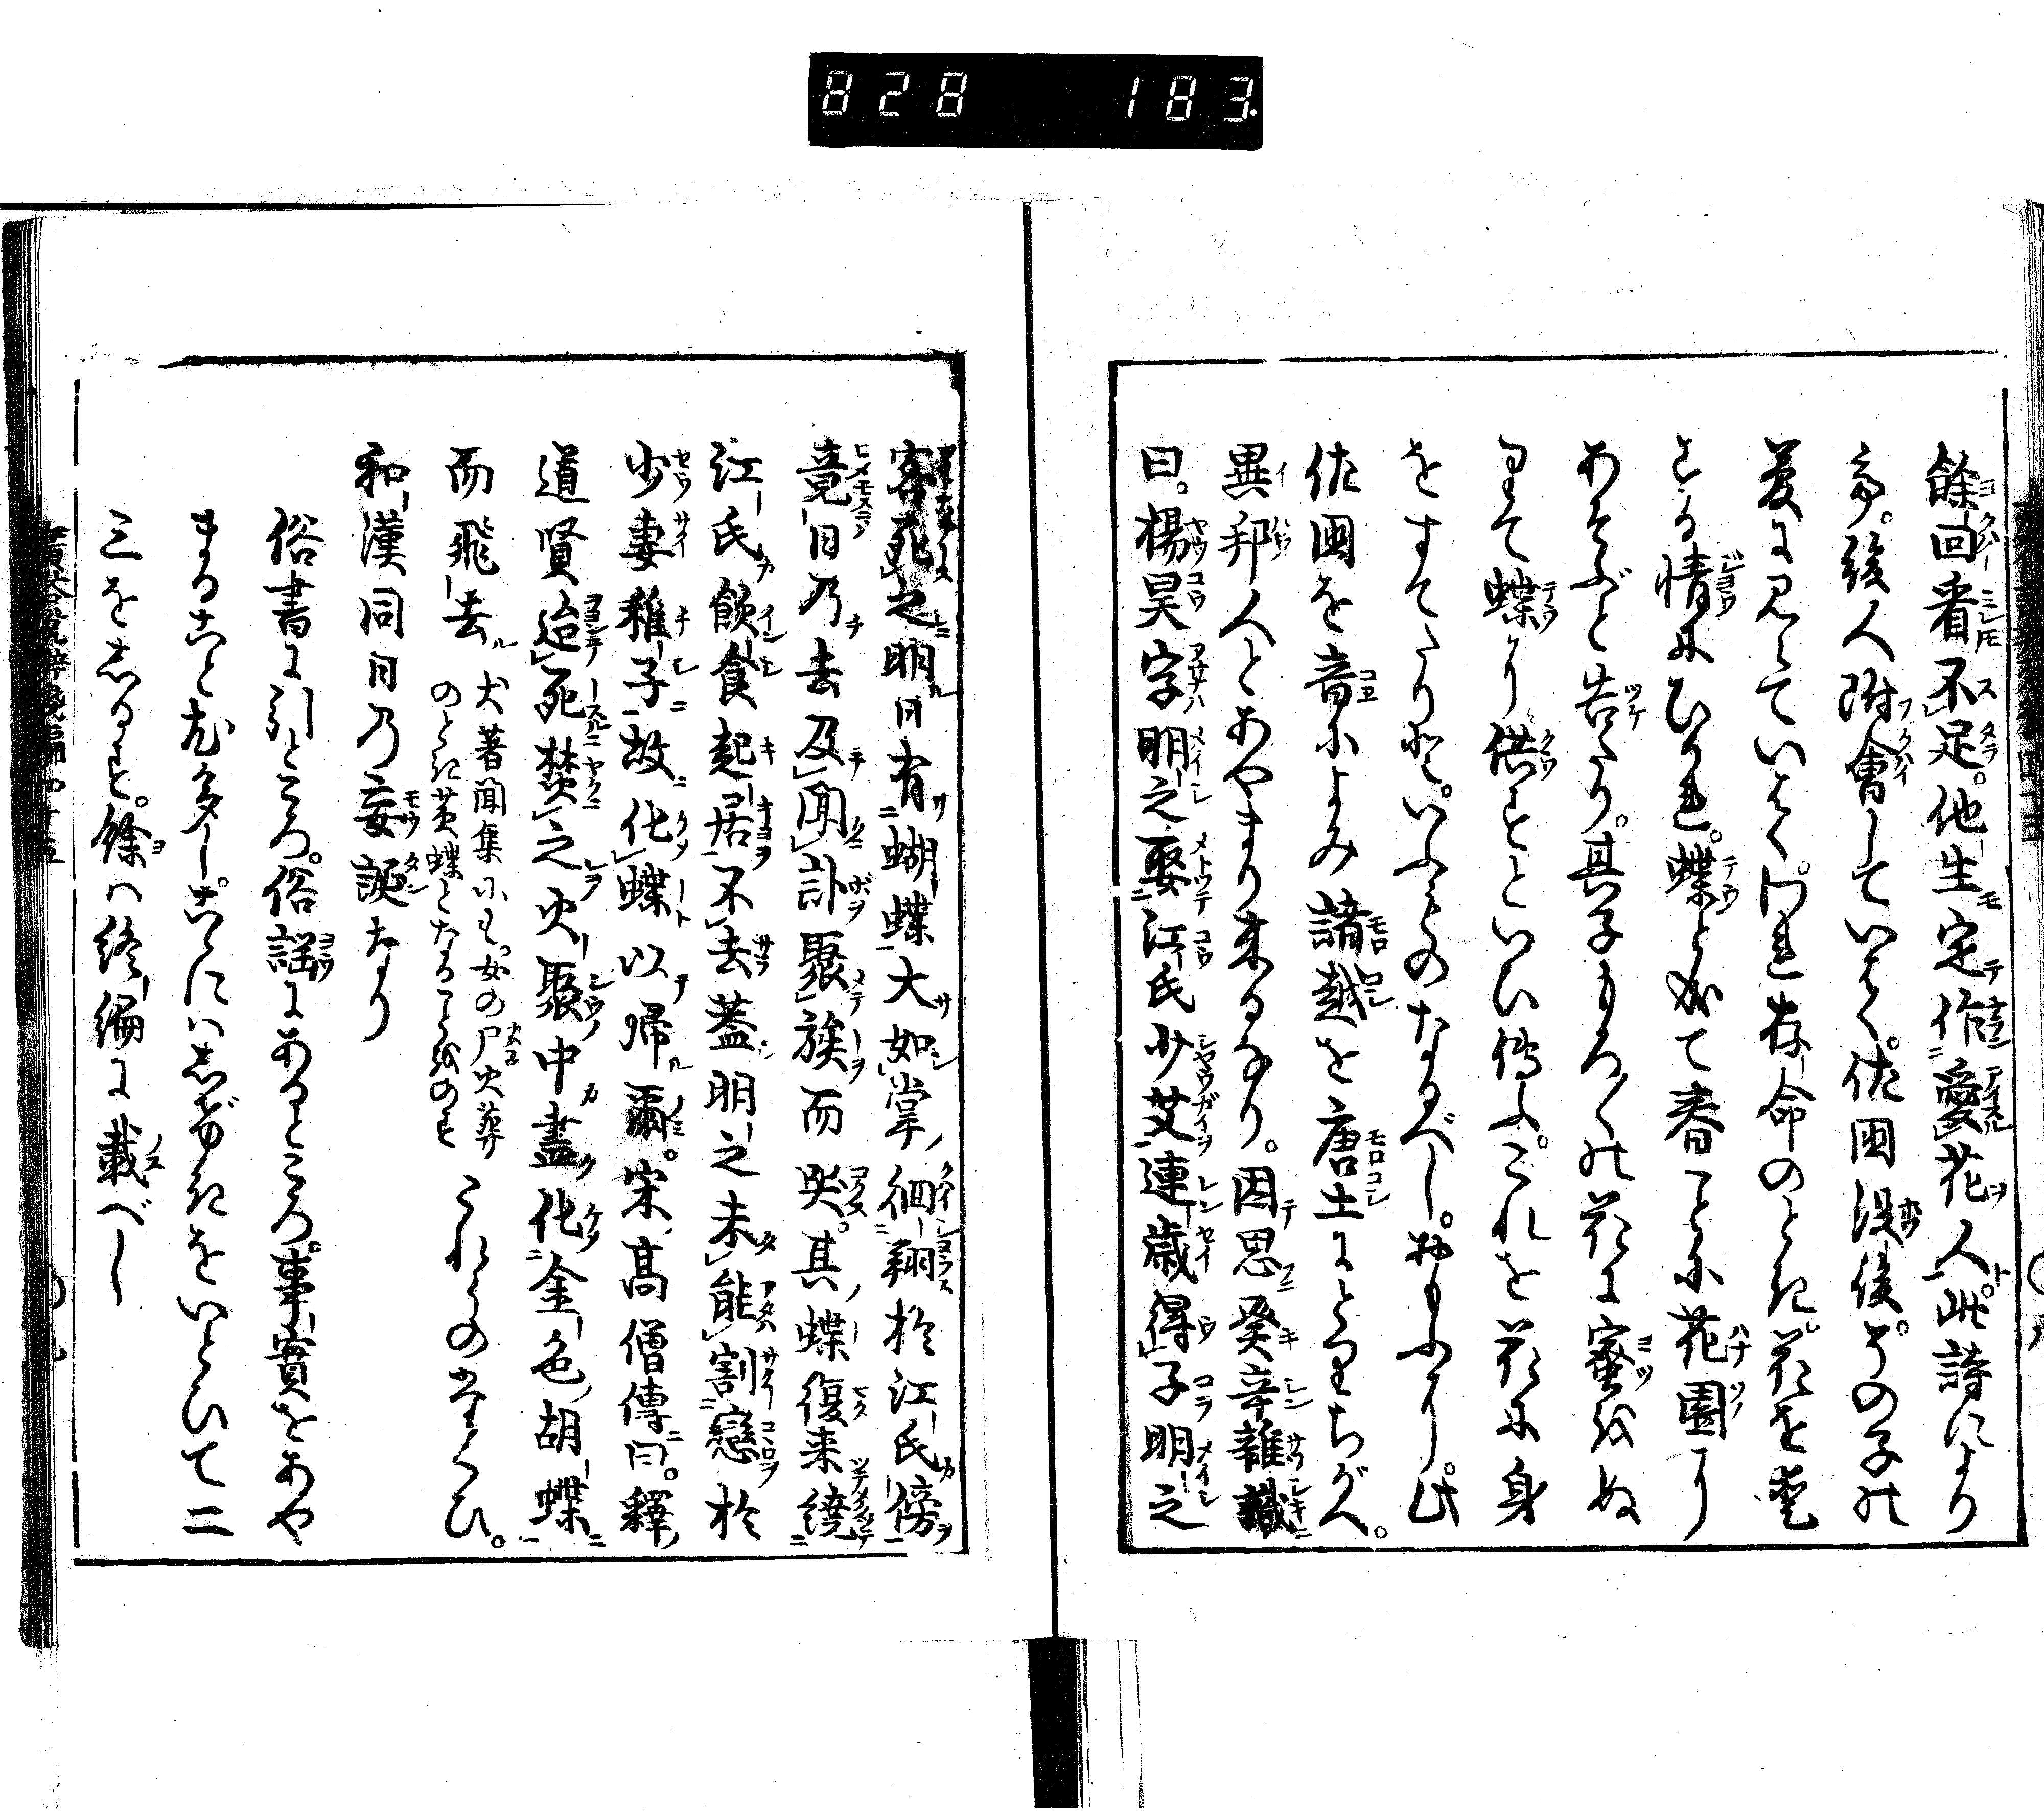 828 183
餘回看不足。他生定作愛花人。此詩により
て。後人附會していはく。佐国没後。その子の
夢に見えていはく。われ存命のとき。花を愛
する情にひかれ。蝶となりて春ごとに花園に
あそぶと告たり。其子もろ〳〵の花に蜜をぬ
りて蝶に供すといひ傳ふ。これを花に身
をすてたりと。いふものなるべし。おもふに。此
佐国を音によみ諸越を唐土にとりちがへ。
異邦人とあやまり来るなり。因思癸辛雜識
曰。楊昊字明之娶江氏少艾連歳得子明之
客死之明日有蝴蝶大如掌徊翔於江氏傍
竟日乃去及聞訃聚族而哭。其蝶復来繞
江氏飲食起居不去蓋明之未能割戀於
少妻稚子故化蝶以帰爾。宋高僧傳曰。釋
道賢迨死焚之火聚中盡化金色胡蝶
而飛去 犬著聞集にも。女の尸火葬
のとき黄蝶となることをのす これらのたぐひ。
和漢同日乃妄誕なり
俗書に引ところ。俗謡にあるところ。事實をあや
まること尤多し。こゝにはしげきをいとひて二
三をしるす。餘は終編に載べし